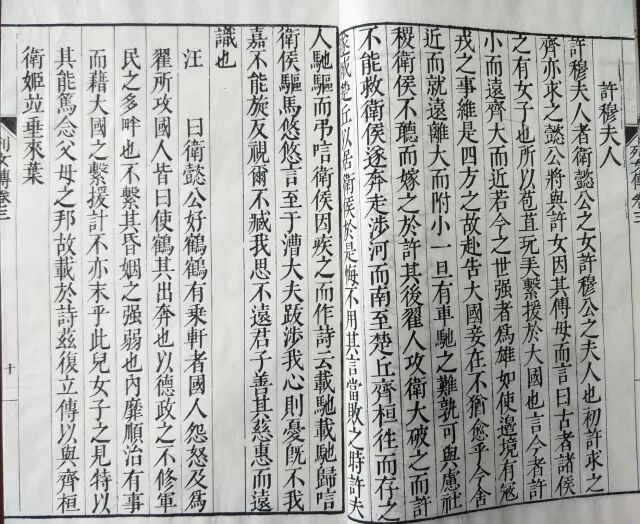 許穆夫人
許穆夫人者衛懿公之女許穆公之夫人也初許求之
齊亦求之懿公將與許女因其傅母而言曰古者諸侯
之有女子也所以苞苴玩弄繫援於大國也言今者許
小而遠齊大而近若今之世强者爲雄如使邊境有寇
戎之事維是四方之故赴告大國妾在不猶愈乎今舍
近而就遠離大而附小一旦有車馳之難孰可與慮社
稷衛侯不聽而嫁之於許其後翟人攻衛大破之而許
不能救衛侯遂奔走涉河而南至楚丘齊桓徃而存之
遂城楚丘以居衛侯於是悔不用其言當敗之時許夫
人馳驅而弔唁衛侯因疾之而作詩云載馳載馳歸唁
衛侯驅馬悠悠言至于漕大夫跋涉我心則憂旣不我
嘉不能旋反視爾不臧我思不遠君子善其慈惠而遠
識也
汪　　曰衛懿公好鶴鶴有乘軒者國人怨怒及爲
翟所攻國人皆曰使鶴其出奔也以德政之不修軍
民之多畔也不繫其昏姻之强弱也内靡順治有事
而藉大國之繫援計不亦末乎此兒女子之見特以
其能篤念父母之邦故載於詩茲復立傳以與齊桓
衛姬並垂來葉
列女傳卷三
十
列女傳卷三